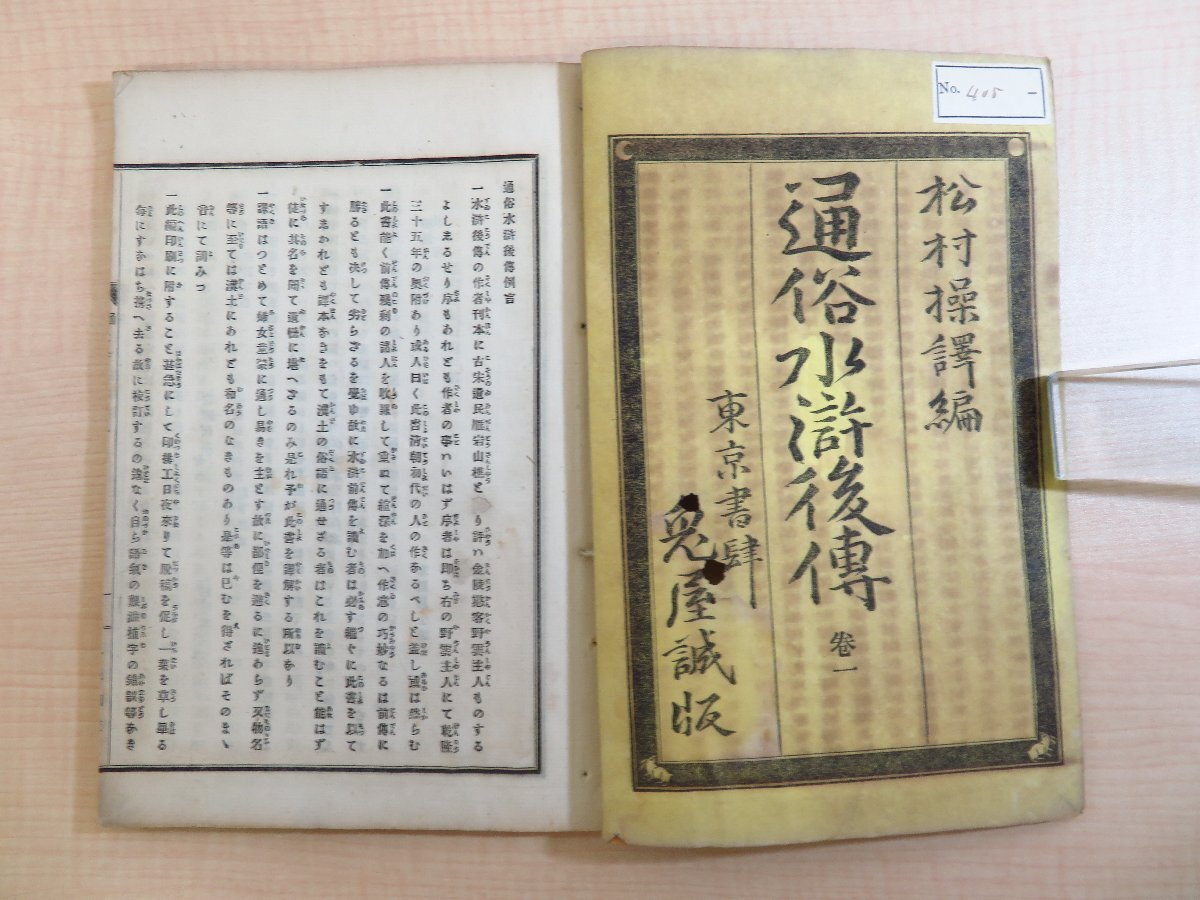 No. 405 —
松村操譯編
通俗水滸後傳 卷一
東京書肆
兎屋誠版
通俗水滸後傳例言
一水滸後傳の作者刊本に古宋遺民雁宕山樵と り評ハ金陵憨客野雲主人ものする
よししるせり序もあれども作者の事ハいはず序者は即ち右の野雲主人にて乾隆
三十五年の奥附あり或人曰く此書清朝初代の人の作あるべしと蓋し或は然らむ
一此書能く前傳殘剩の諸人を收羅して重ねて綵澤を加へ作意の巧妙なるは前傳に
勝るとも決して劣らざるを覺ゆ故に水滸前傳を讀む者は必す繼くに此書を以て
すまかれども譯本なきをもて漢土の俗語に通せざる者はこれを讀むこと能はず
徒に其名を聞て遺憾に堪へざるのみ是れ予が此書を譯解する所以なり
一譯語はつとめて婦女童蒙に通し易きを主とす故に鄙俚を避るに遑あらず又物名
等に至ては漢土にあれども和名のなきものあり是等は已むを得ざればそのまゝ
音にて訓みつ
一此編印刷に附すること甚急にして印務工日夜來りて脱稿を促し一葉を草し畢る
毎にすなはち携へ去る故に校訂するの遑なく自ら語氣の